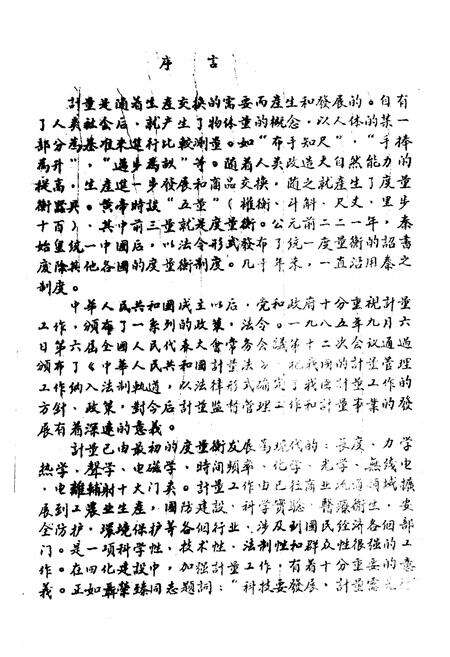 序言
計量是随着生產交换的需要而產生和發展的。自有
了人类社会后，就产生了物体量的概念，以人体的某一
部分為基准来進行比較測量。如“布手知尺”，“手捧
為升”，“邁步為畝”等。随着人类改造大自然能力的
提高，生產進一步發展和商品交换，随之就產生了度量
衡器具。黄帝時設“五量”（權衡、斗斛、尺丈、里步
十百），其中前三量就是度量衡。公元前二二一年，秦
始皇統一中國后，以法令形式發布了統一度量衡的詔書
废除其他各國的度量衡制度。几千年来，一直沿用秦之
制度。
中華人民共和國成立以后，党和政府十分重視計量
工作，頒布了一系列的政策，法令。一九八五年九月六
日第六届全國人民代表大會常务会議第十二次会议通過
頒布了《中華人民共和國計量法》，把我國的計量管理
工作纳入法制軌道，以法律形式确定了我國計量工作的
方針、政策，對今后計量監督管理工作和計量事業的發
展有着深遠的意義。
計量已由最初的度量衡发展為現代的：長度、力学
热学、聲学、电磁学、時间頻率、化学、光学、無线电
、电離輻射十大门类。計量工作由已往商业流通領域擴
展到工農业生産，國防建設，科学實驗，醫療衛生，安
全防护，環境保护等各個行业，涉及到國民经济各個部
门。是一項科学性、技术性、法制性和群众性很强的工
作。在四化建設中，加强計量工作，有着十分重要的意
義。正如聶榮臻同志題詞：“科技要發展，計量需先行